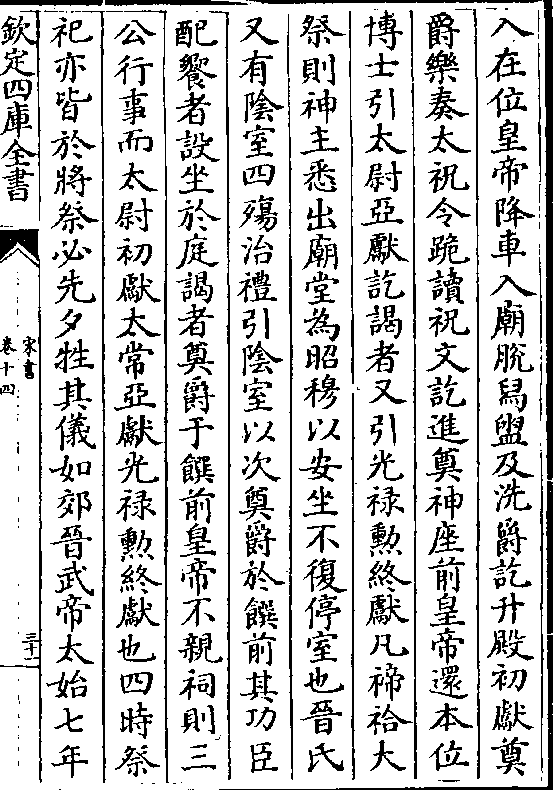 入在位皇帝降車入廟脫舄盥及洗爵訖升殿初獻奠
爵樂奏太祝令跪讀祝文訖進奠神座前皇帝還本位
博士引太尉亞獻訖謁者又引光祿勲終獻凡禘祫大
祭則神主悉出廟堂為昭穆以安坐不復停室也晉氏
又有陰室四殤治禮引陰室以次奠爵於饌前其功臣
配饗者設坐於庭謁者奠爵于饌前皇帝不親祠則三
公行事而太尉初獻太常亞獻光祿勲終獻也四時祭
祀亦皆於將祭必先夕牲其儀如郊晉武帝太始七年
欽定四庫全書
宋書
卷十四
三十一